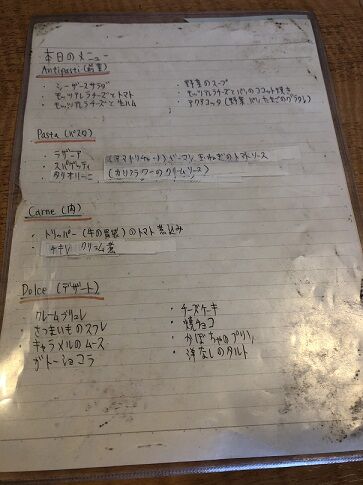 本日のメニュー
Antipasti (前菜)
・シーザーサラダ
・モッツァレラチーズとトマト
・モッツァレラチーズと生ハム
・野菜のスープ
・モッツァレラチーズとパンのココット焼き
・アクアコッタ (野菜 パン たまごのグラタン)
Pasta (パスタ)
・ラザーニア
・スパゲッティ (アマトリチャーナ) ベーコン 玉ねぎのトマトソース
・タリオリーニ (カリフラワーのクリームソース)
Carne (肉)
・トリッパー (牛の胃袋) のトマト煮込み
・チキン クリーム煮
Dolce (デザート)
・クレームブリュレ
・さつまいものスフレ
・キャラメルのムース
・ガトーショコラ
・チーズケーキ
・焼チョコ
・かぼちゃのプリン
・洋なしのタルト